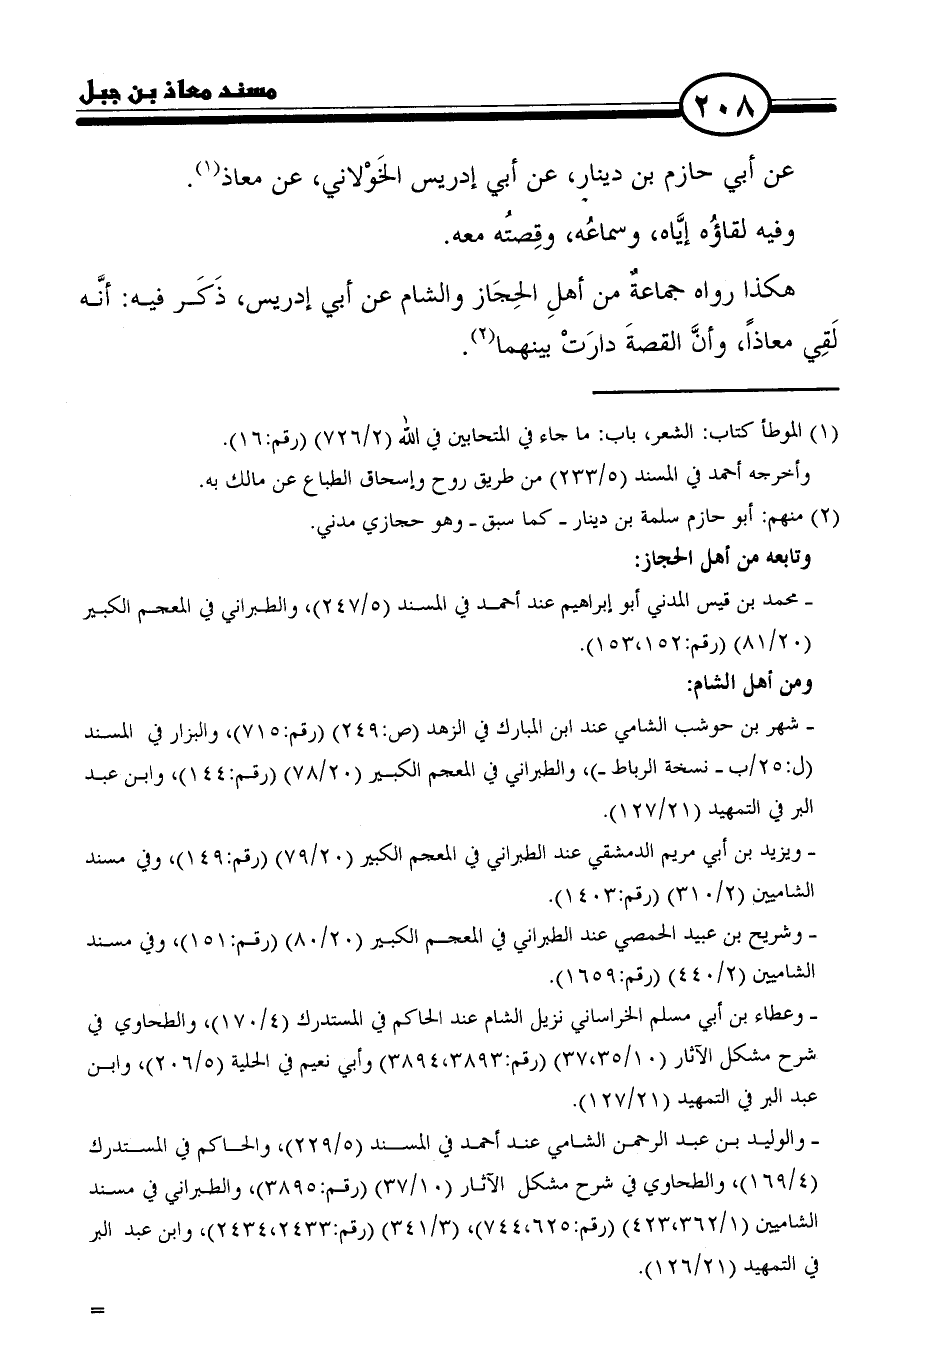 مسند معاذ بن جبل
٢٠٨
عن أبي حازم بن دينار، عن أبي إدريس الخَوْلاني، عن معاذ(١).
وفيه لقاؤُه إيَّاه، وسماعُه، وقِصتُه معه.
هكذا رواه جماعةٌ من أهلِ الحِجَاز والشام عن أبي إدريس، ذَكَر فيه: أنَّه
لَقِي معاذاً، وأنَّ القصةَ دارَتْ بينهما(٢).
(١) الموطأ كتاب: الشعر، باب: ما جاء في المتحابين في الله (٧٢٦/٢) (رقم:١٦).
وأخرجه أحمد في المسند (٢٣٣/٥) من طريق روح وإسحاق الطباع عن مالك به.
(٢) منهم: أبو حازم سلمة بن دينار ـ كما سبق ـ وهو حجازي مدني.
وتابعه من أهل الحجاز:
ـ محمد بن قيس المدني أبو إبراهيم عند أحمد في المسند (٢٤٧/٥)، والطبراني في المعجم الكبير
(٨١/٢٠) (رقم:١٥٣،١٥٢).
ومن أهل الشام:
ـ شهر بن حوشب الشامي عند ابن المبارك في الزهد (ص:٢٤٩) (رقم:٧١٥)، والبزار في المسند
(ل:٢٥/ب ـ نسخة الرباط ـ)، والطبراني في المعجم الكبير (٧٨/٢٠) (رقم:١٤٤)، وابن عبد
البر في التمهيد (١٢٧/٢١).
ـ ويزيد بن أبي مريم الدمشقي عند الطبراني في المعجم الكبير (٧٩/٢٠) (رقم:١٤٩)، وفي مسند
الشاميين (٣١٠/٢) (رقم:١٤٠٣).
ـ وشريح بن عبيد الحمصي عند الطبراني في المعجم الكبير (٨٠/٢٠) (رقم:١٥١)، وفي مسند
الشاميين (٤٤٠/٢) (رقم:١٦٥٩).
ـ وعطاء بن أبي مسلم الخراساني نزيل الشام عند الحاكم في المستدرك (١٧٠/٤)، والطحاوي في
شرح مشكل الآثار (٣٧،٣٥/١٠) (رقم:٣٨٩٤،٣٨٩٣) وأبي نعيم في الحلية (٢٠٦/٥)، وابن
عبد البر في التمهيد (١٢٧/٢١).
ـ والوليد بن عبد الرحمن الشامي عند أحمد في المسند (٢٢٩/٥)، والحاكم في المستدرك
(١٦٩/٤)، والطحاوي في شرح مشكل الآثار (٣٧/١٠) (رقم:٣٨٩٥)، والطبراني في مسند
الشاميين (٤٢٣،٣٦٢/١) (رقم:٧٤٤،٦٢٥)، (٣٤١/٣) (رقم:٢٤٣٤،٢٤٣٣)، وابن عبد البر
في التمهيد (١٢٦/٢١).
=